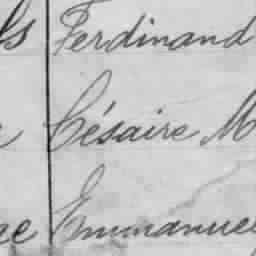 Ferdinand
Césaire M
Emmanuel